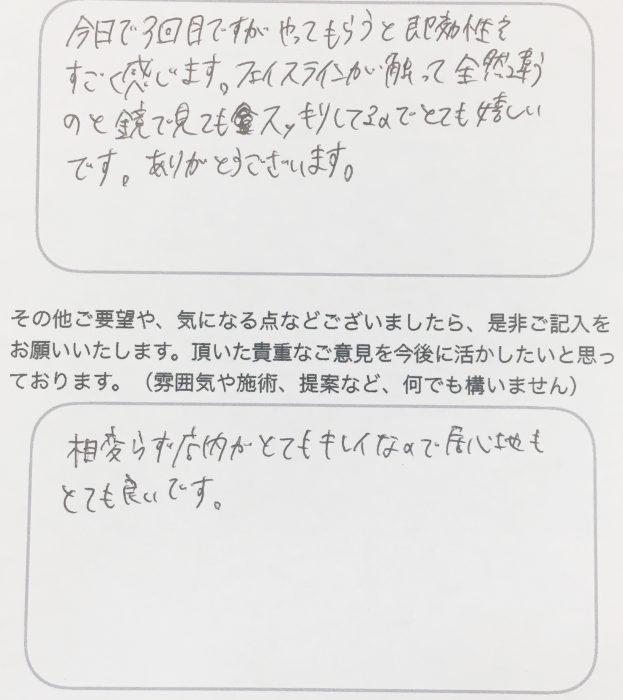 今日で3回目ですが やってもらうと 即効性を
すごく感じます。フェイスラインが 触って 全然違う
のと 鏡で見ても スッキリしてるのでとても 嬉しい
です。ありがとうございます。
その他ご要望や、気になる点などございましたら、是非ご記入を
お願いいたします。頂いた貴重なご意見を今後に活かしたいと思っ
ております。（雰囲気や施術、提案など、何でも構いません）
相変らず店内がとてもキレイなので居心地も
とても良いです。